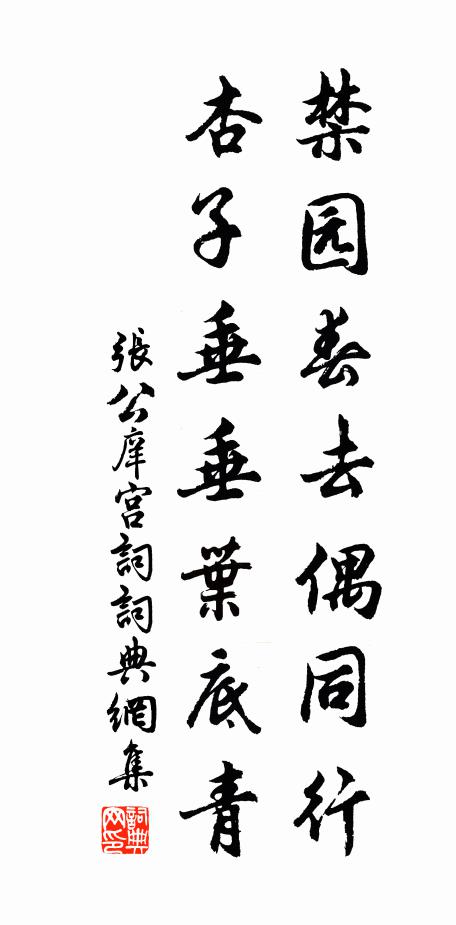 禁园春去偶同行
杏子垂垂葉底青
張公庠宫詞詞典網集
詞典网印